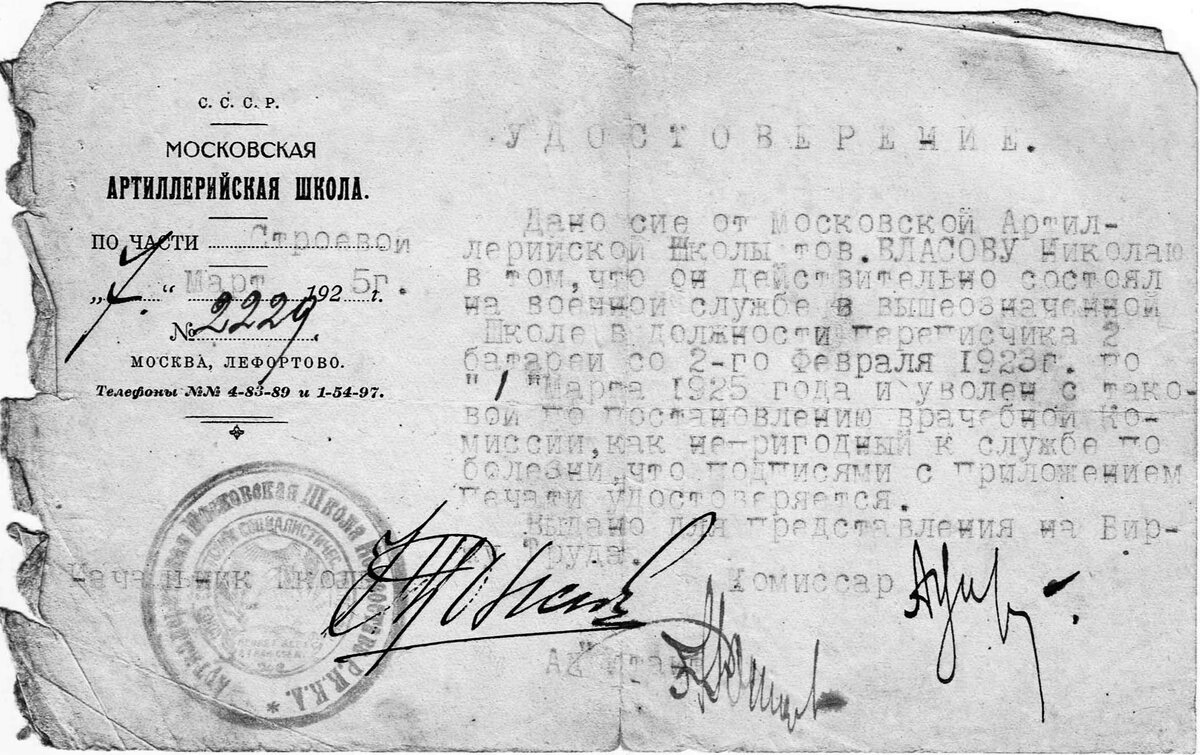 С. С. С. Р.
МОСКОВСКАЯ
АРТИЛЛЕРИЙСКАЯ ШКОЛА.
ПО ЧАСТИ Строевой
„ 7. “ Март 1925г.
№ 2229
МОСКВА, ЛЕФОРТОВО.
Телефоны №№ 4-83-89 и 1-54-97.
УДОСТОВЕРЕНИЕ.
Дано сие от Московской Артил-
лерийской Школы тов.ВЛАСОВУ Николаю
в том,что он действительно состоял
на военной службе в вышеозначенной
Школе в должности переписчика 2
батареи со 2-го Февраля 1923г. по
"1" Марта 1925 года и уволен с тако-
вой по постановлению врачебной Ко-
миссии,как не-пригодный к службе по
болезни,что подписями с приложением
печати удостоверяется.
Выдано для представления на Бир-
жу Труда.
Начальник Школы
Комиссар
Ад'ютант
Артиллерийская Московская Школа Р.К.К.А.